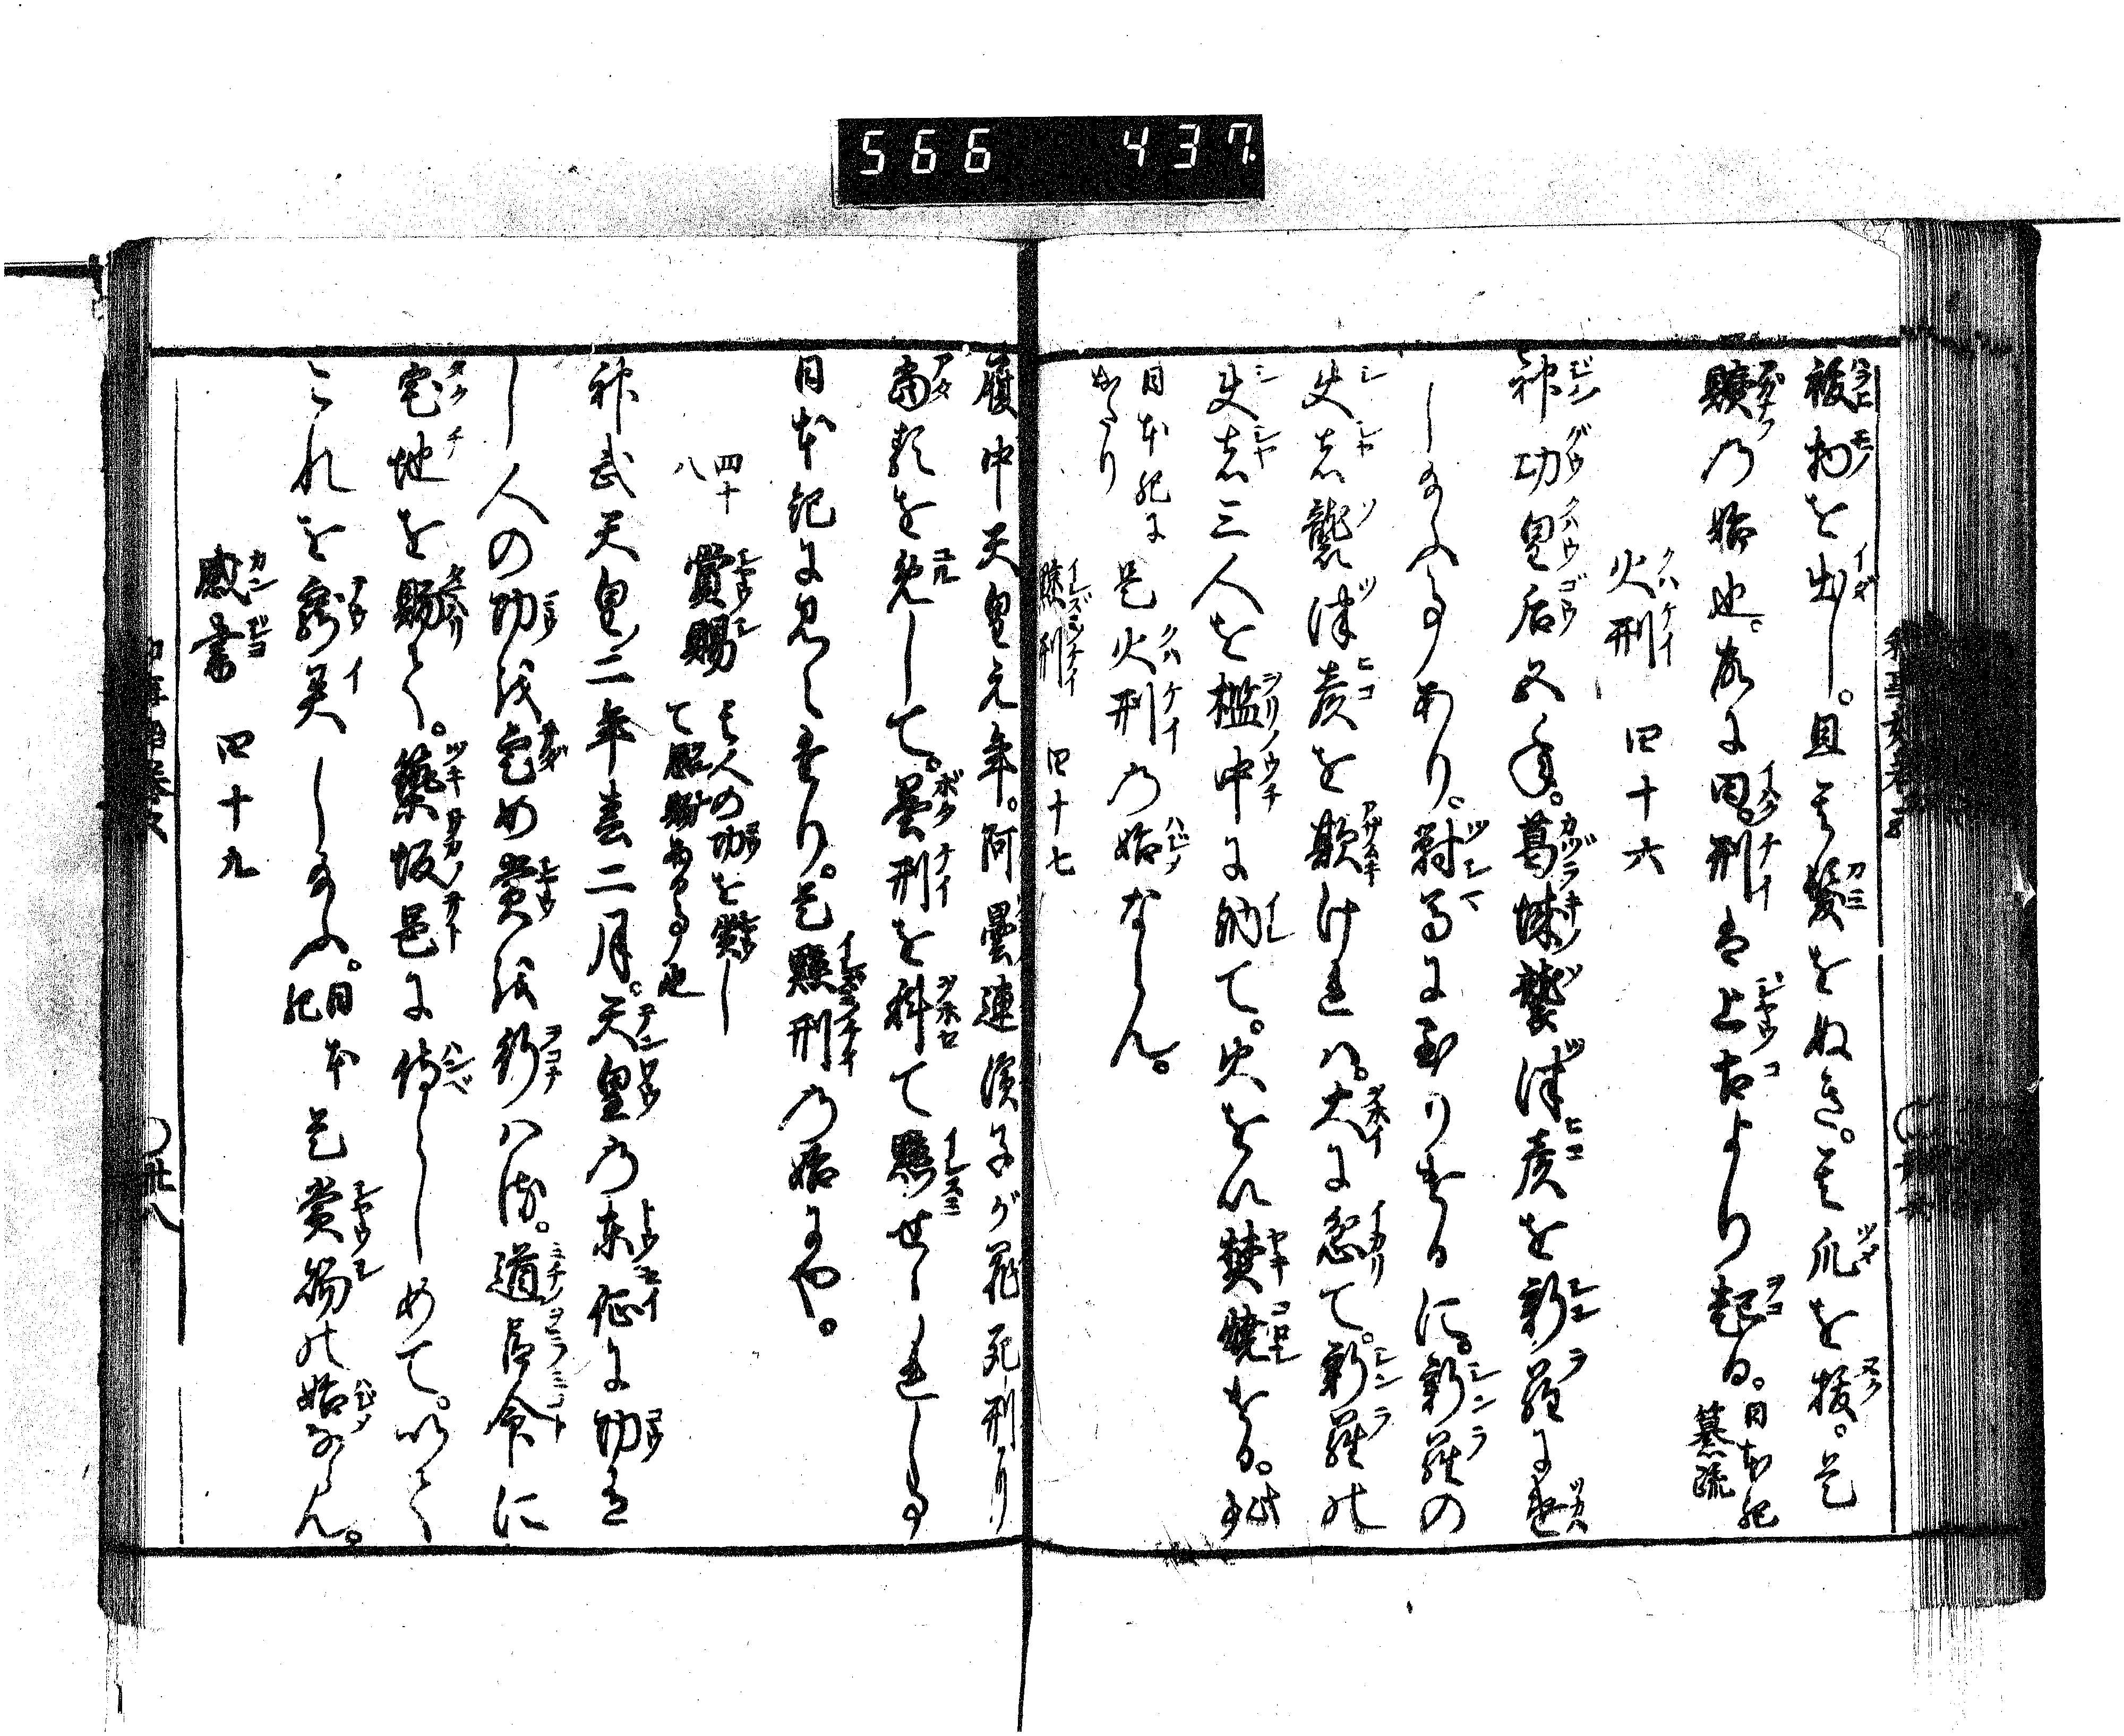 566 437
祓物を出し。且其髪をぬき。其爪を抜。是
贖乃始也。故に因刑は上古より起る。日本紀
纂疏
火刑 四十六
神功皇后五年。葛城襲津彦を新羅に遣
し給ふ事あり。対馬に至りける に。新羅の
使者襲津彦を欺けれハ。大に忿て。新羅の
使者三人を檻中に納て。火をもて焚燒する。此事
日本紀に
出たり
是火刑乃始ならん。
黥刑 四十七
履中天皇元年。阿曇連濱子が罪死刑に
当るを免して。墨刑を科て黥せられし事
日本紀に見へたり。是黥刑乃始にや。
四十
八
賞賜 其人の功を賞し
て恩賜ある事也
神武天皇二年春二月。天皇乃東征に功有
し人の功を定め賞を行ハる。道臣命に
宅地を賜て。築坂邑に侍らしめて。以て
これを寵異し給ふ。日本
紀
是賞賜の始ならん。
感書 四十九